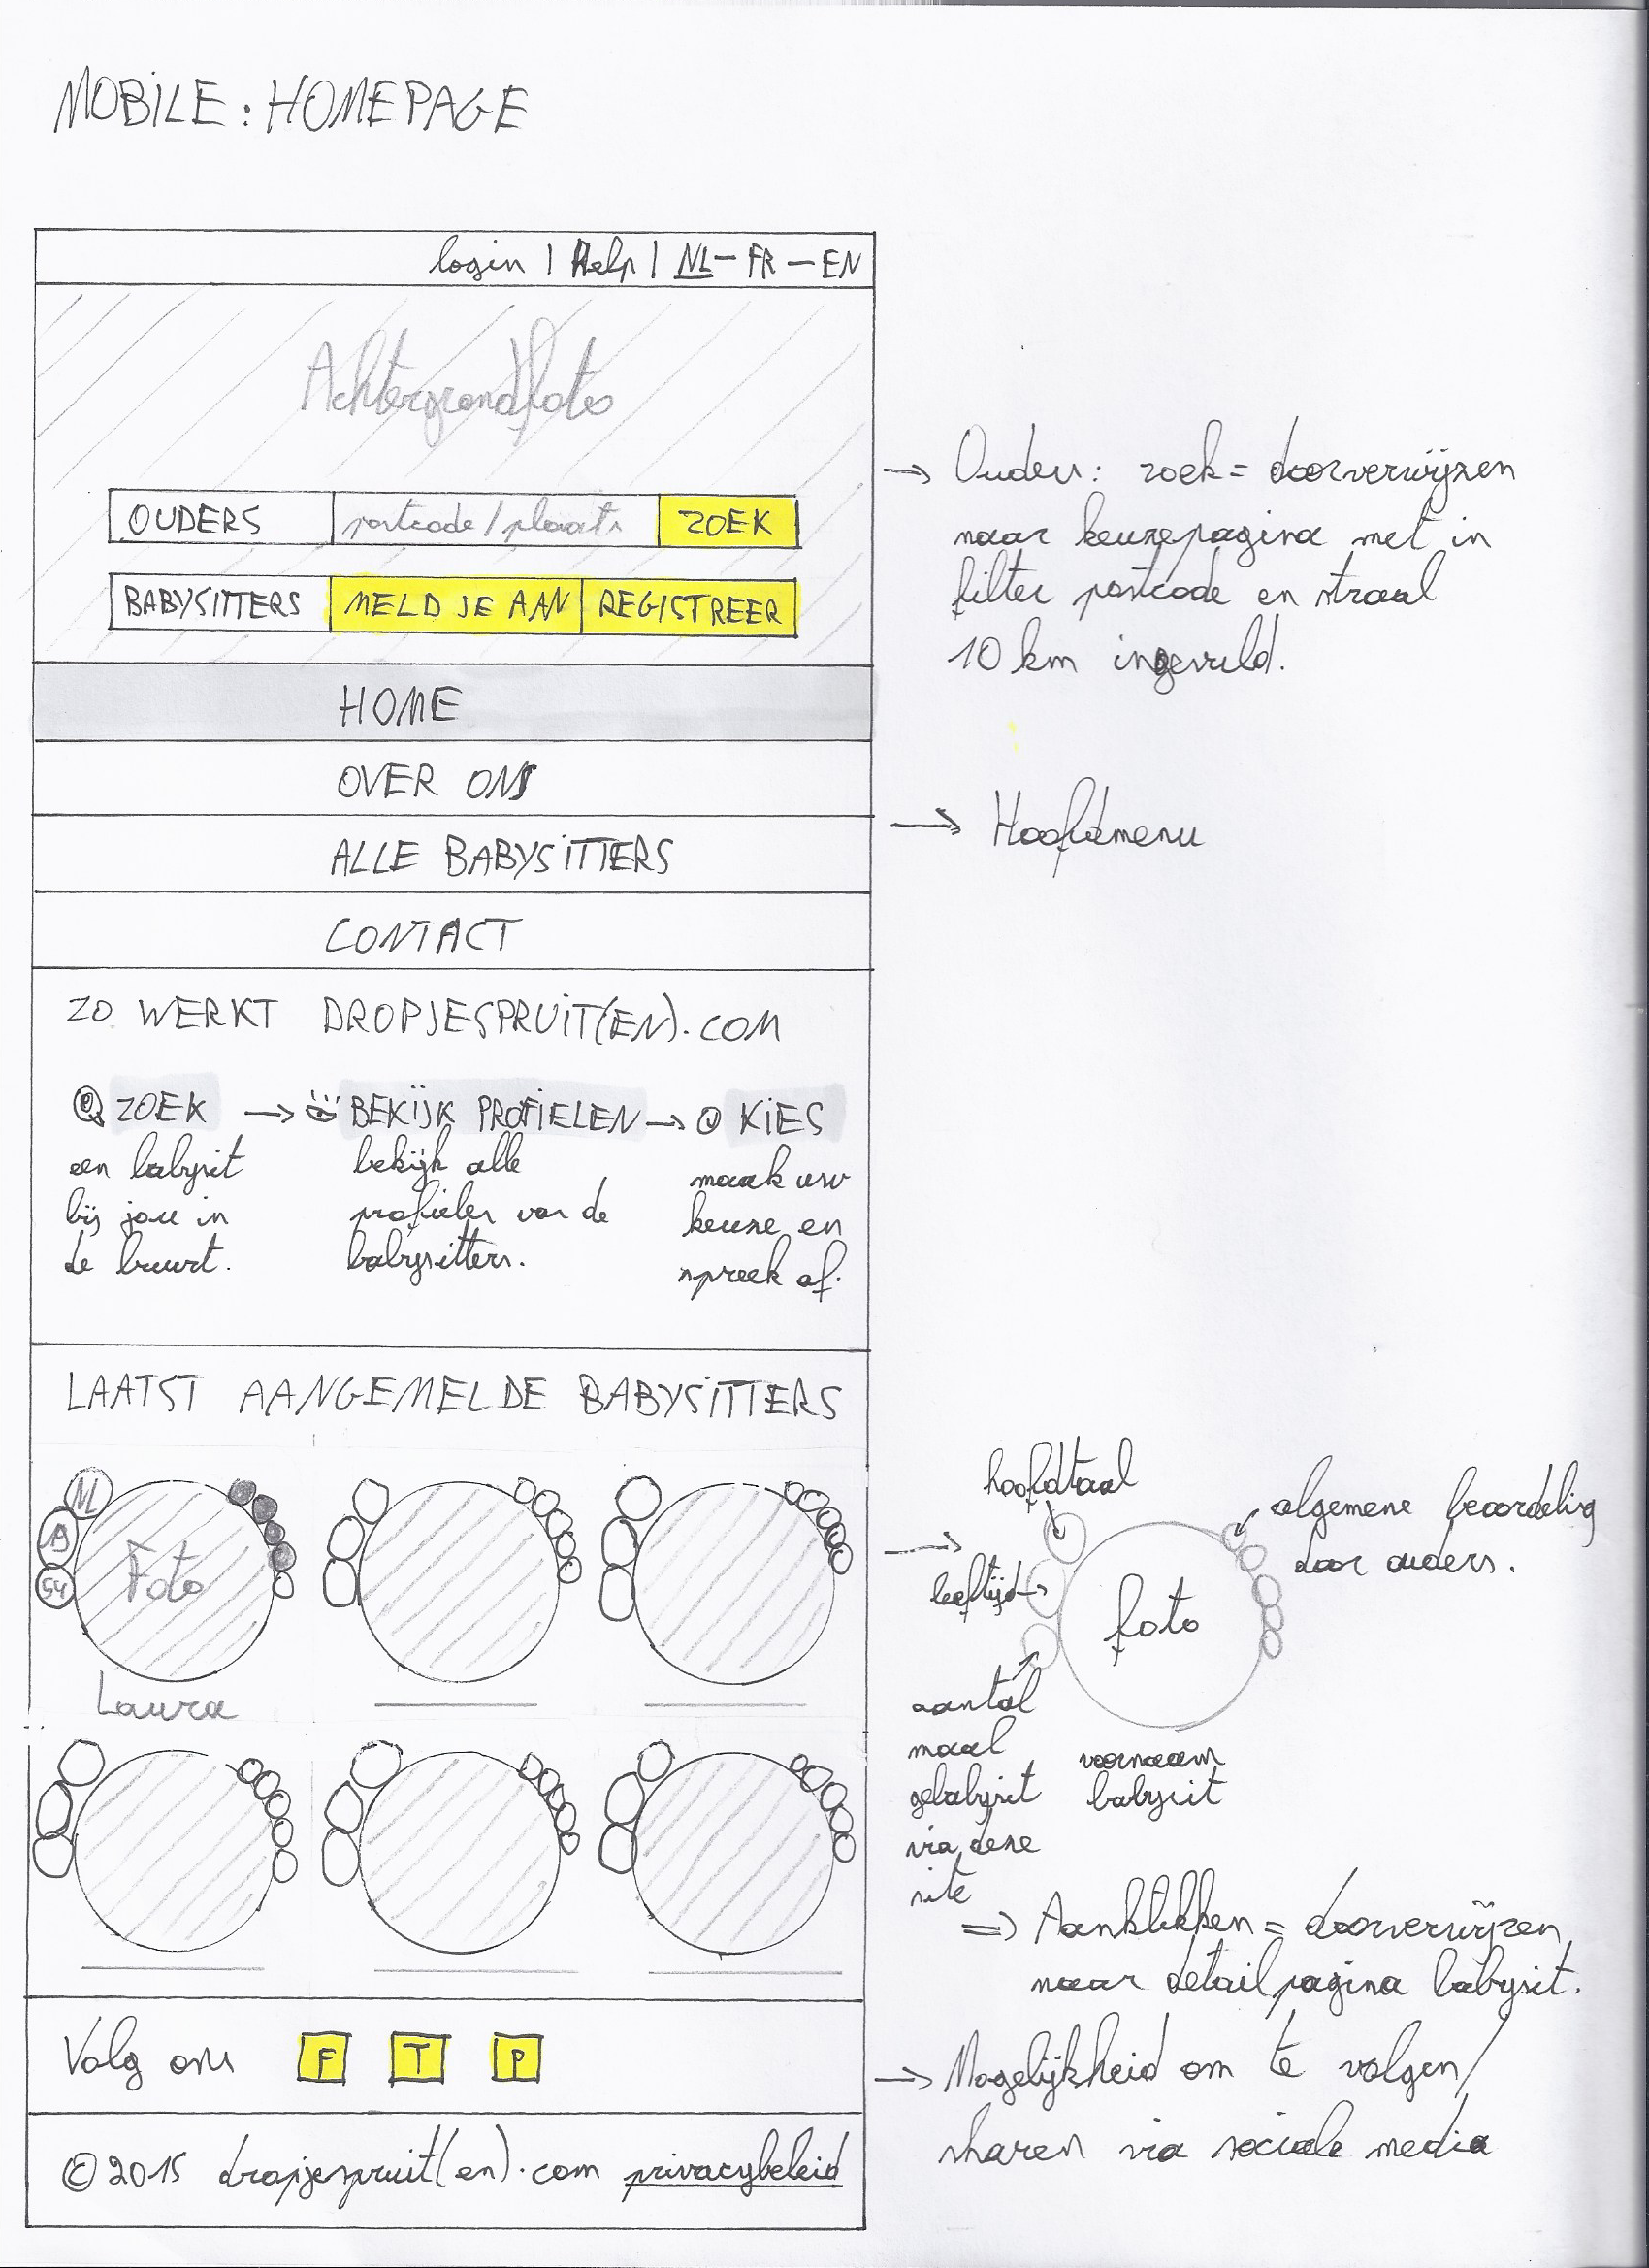 MOBILE: HOMEPAGE
login | Help | NL – FR – EN
Achtergrondfoto
OUDERS postcode/plaats ZOEK
BABYSITTERS MELD JE AAN REGISTREER
→ Ouders: zoek = doorverwijzen
naar keuzepagina met in
filter postcode en straal
10 km ingevuld.
HOME
OVER ONS
ALLE BABYSITTERS
CONTACT
→ Hoofdmenu
ZO WERKT DROPJESPRUIT(EN).COM
ZOEK → BEKIJK PROFIELEN → KIES
een babysit
bij jou in
de buurt.
bekijk alle
profielen van de
babysitters.
maak uw
keuze en
spreek af.
LAATST AANGEMELDE BABYSITTERS
NL
Foto
Laura
hoofdtaal
leeftijd →
aantal
maal
gebabysit
via deze
site
foto
voornaam
babysit
algemene beoordeling
door ouders.
⇒ Aanklikken = doorverwijzen
naar detailpagina babysit.
Volg ons F T P
→ Mogelijkheid om te volgen/
sharen via sociale media
© 2015 dropjespruit(en).com privacybeleid